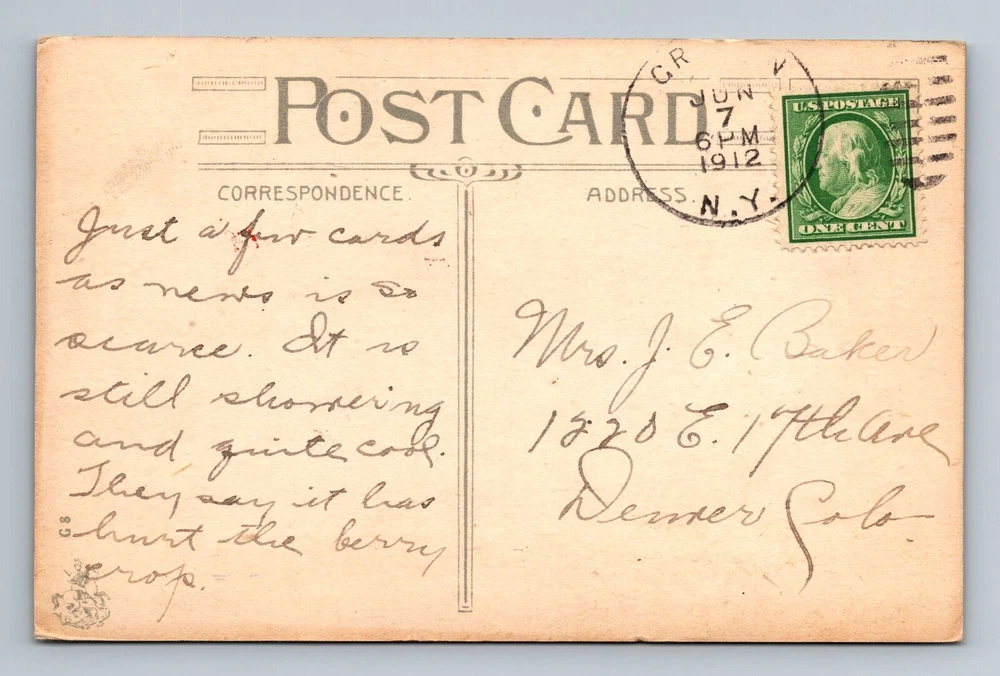 POST CARD
CORRESPONDENCE.
ADDRESS.
GR
JUN
7
6 PM
1912
N.Y.
U.S. POSTAGE
ONE CENT
Just a few cards
as news is so
scarce. It is
still showering
and quite cool.
They say it has
hurt the berry
crop.
G8
Mrs. J. E. Baker
1220 E. 17th Ave
Denver Colo